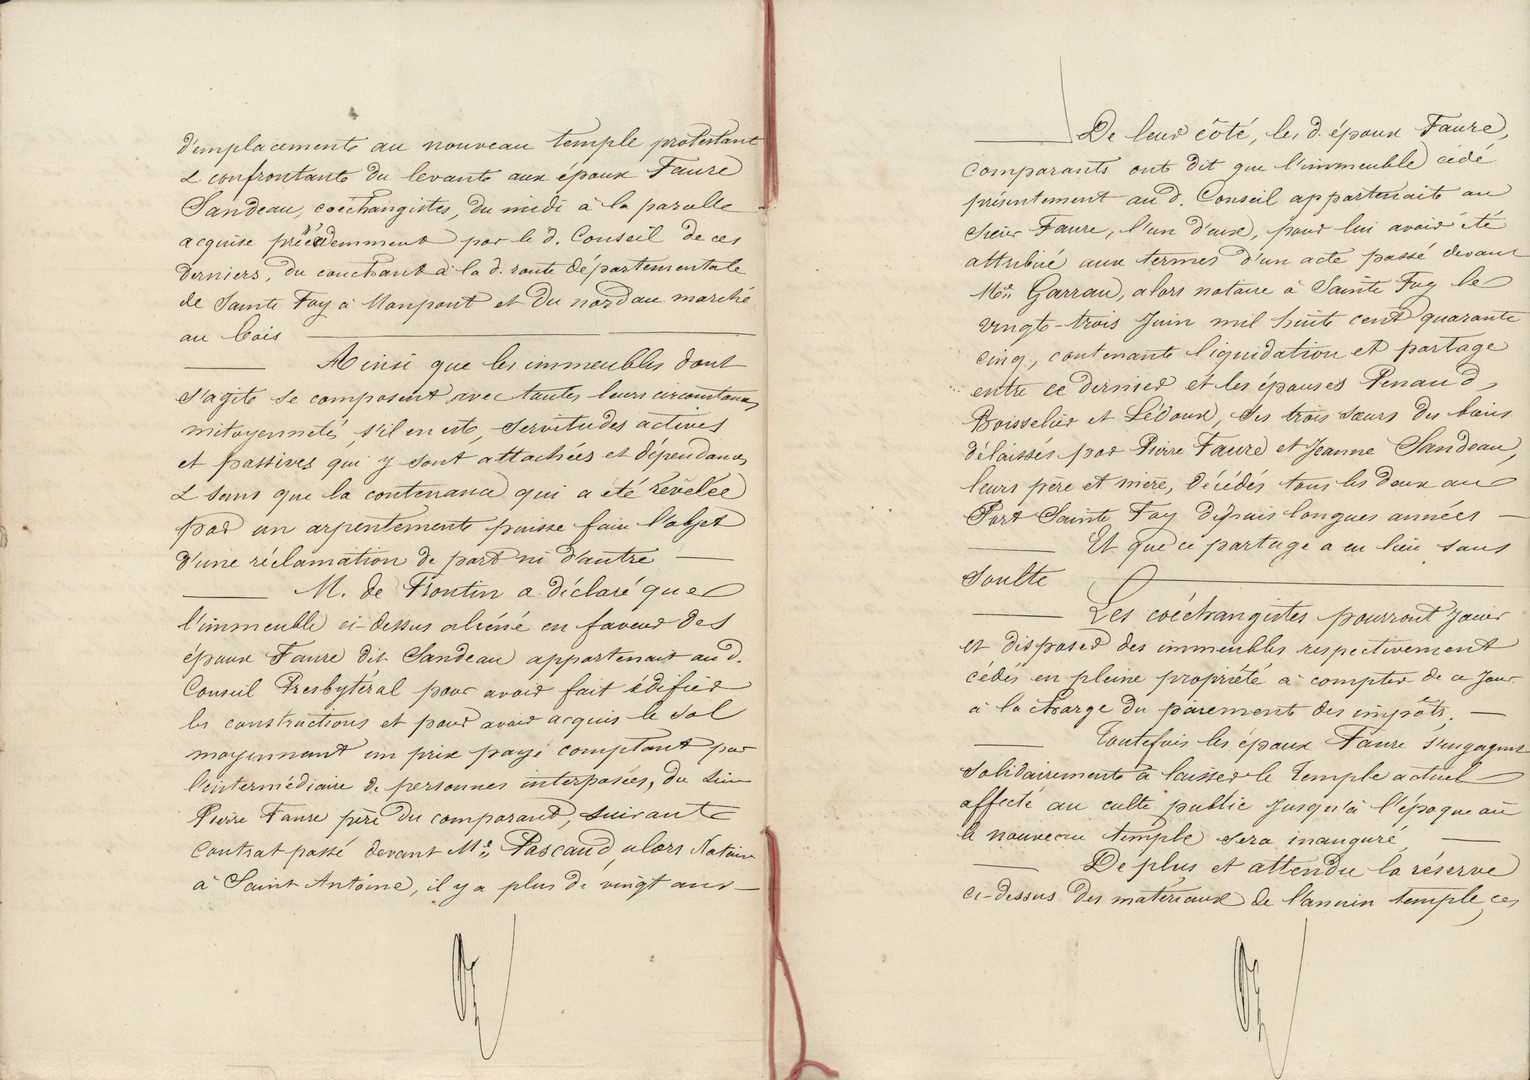 d'emplacement au nouveau temple protestant
& confrontant du levant aux époux Faure
Sandeau, coéchangistes, du midi à la parcelle
acquise précédemment par le d. Conseil de ces
derniers, du couchant à la d. route départementale
de Sainte Foy à Monpont et du nord au marché
au bois
Ainsi que les immeubles dont
s'agit se composent avec toutes leurs circonstances
mitoyennetés, s'il en est, servitudes actives
et passives qui y sont attachées et dépendances
& sans que la contenance qui a été révélée
par un arpentement puisse faire l'objet
d'une réclamation de part ni d'autre
M. de Frontin a déclaré que
l'immeuble ci-dessus aliéné en faveur des
époux Faure dit Sandeau appartenait au d.
Conseil Presbytéral pour avoir fait édifier
les constructions et pour avoir acquis le sol
moyennant un prix payé comptant par
l'intermédiaire de personnes interposées, du sieur
Pierre Faure père du comparant, suivant
contrat passé devant Me. Pascaud, alors Notaire
à Saint Antoine, il y a plus de vingt ans
De leur côté, les d. époux Faure,
comparants ont dit que l'immeuble cédé
présentement au d. Conseil appartenait au
sieur Faure, l'un d'eux, pour lui avoir été
attribué aux termes d'un acte passé devant
Me. Garrau, alors notaire à Sainte Foy le
vingt-trois Juin mil huit cent quarante
cinq, contenant liquidation et partage
entre ce dernier et les épouses Renaud,
Boisselier et Lédoux, ses trois sœurs des biens
délaissés par Pierre Faure et Jeanne Sandeau,
leurs père et mère, décédés tous les deux au
Port Sainte Foy depuis longues années
Et que ce partage a eu lieu sans
soulte
Les coéchangistes pourront jouir
et disposer des immeubles respectivement
cédés en pleine propriété à compter de ce jour
à la charge du paiement des impôts.
Toutefois les époux Faure s'engagent
solidairement à laisser le temple actuel
affecté au culte public jusqu'à l'époque où
le nouveau temple sera inauguré
De plus et attendu la réserve
ci-dessus des matériaux de l'ancien temple, ces